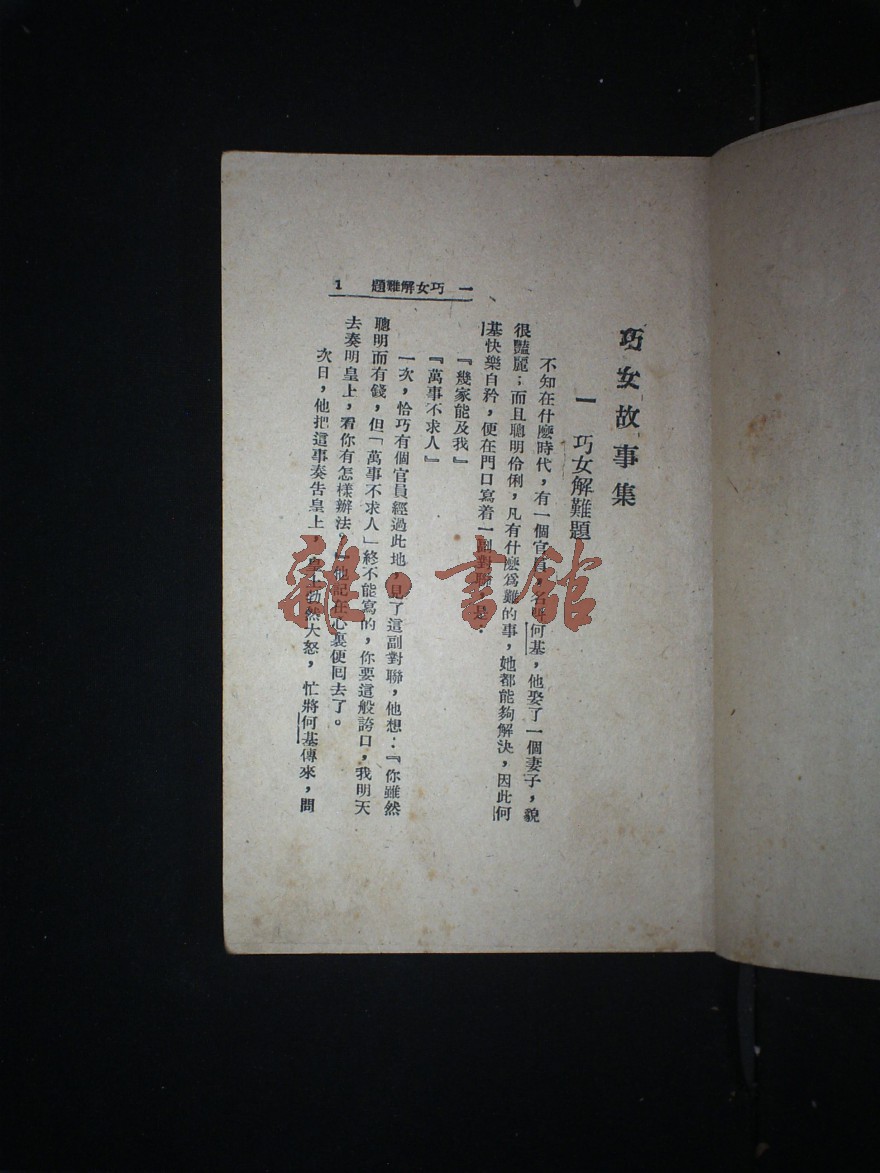 巧女故事集
一 巧女解難題
不知在什麽時代，有一個官員，名呼何基，他娶了一個妻子，貌
很豔麗；而且聰明伶俐，凡有什麽爲難的事，她都能夠解決，因此何
基快樂自矜，便在門口寫着一副對聯，是：
『幾家能及我』
『萬事不求人』
一次，恰巧有個官員經過此地，見了這副對聯，他想：『你雖然
聰明而有錢，但「萬事不求人」終不能寫的，你要這般誇口，我明天
去奏明皇上，看你有怎樣辦法。』他記在心裏便回去了。
次日，他把這事奏告皇上，皇上勃然大怒，忙將何基傳來，問
一 巧女解難題 1
雜·書館